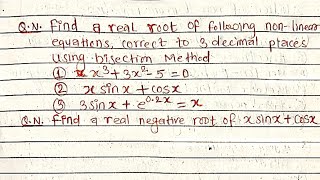 Q.N. Find a real root of following non-linear
equations, correct to 3 decimal places
using bisection Method
① x³ + 3x² - 5 = 0
② x sin x + cos x
③ 3 sin x + e^0.2x = x
Q.N. Find a real negative root of x sin x + cos x